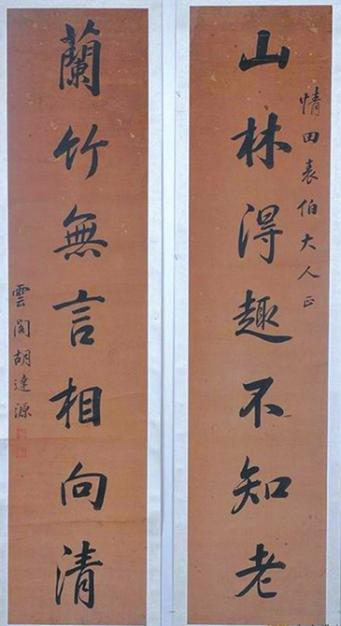 情田表伯大人正
山林得趣不知老
蘭竹無言相向清
雲閣胡達源